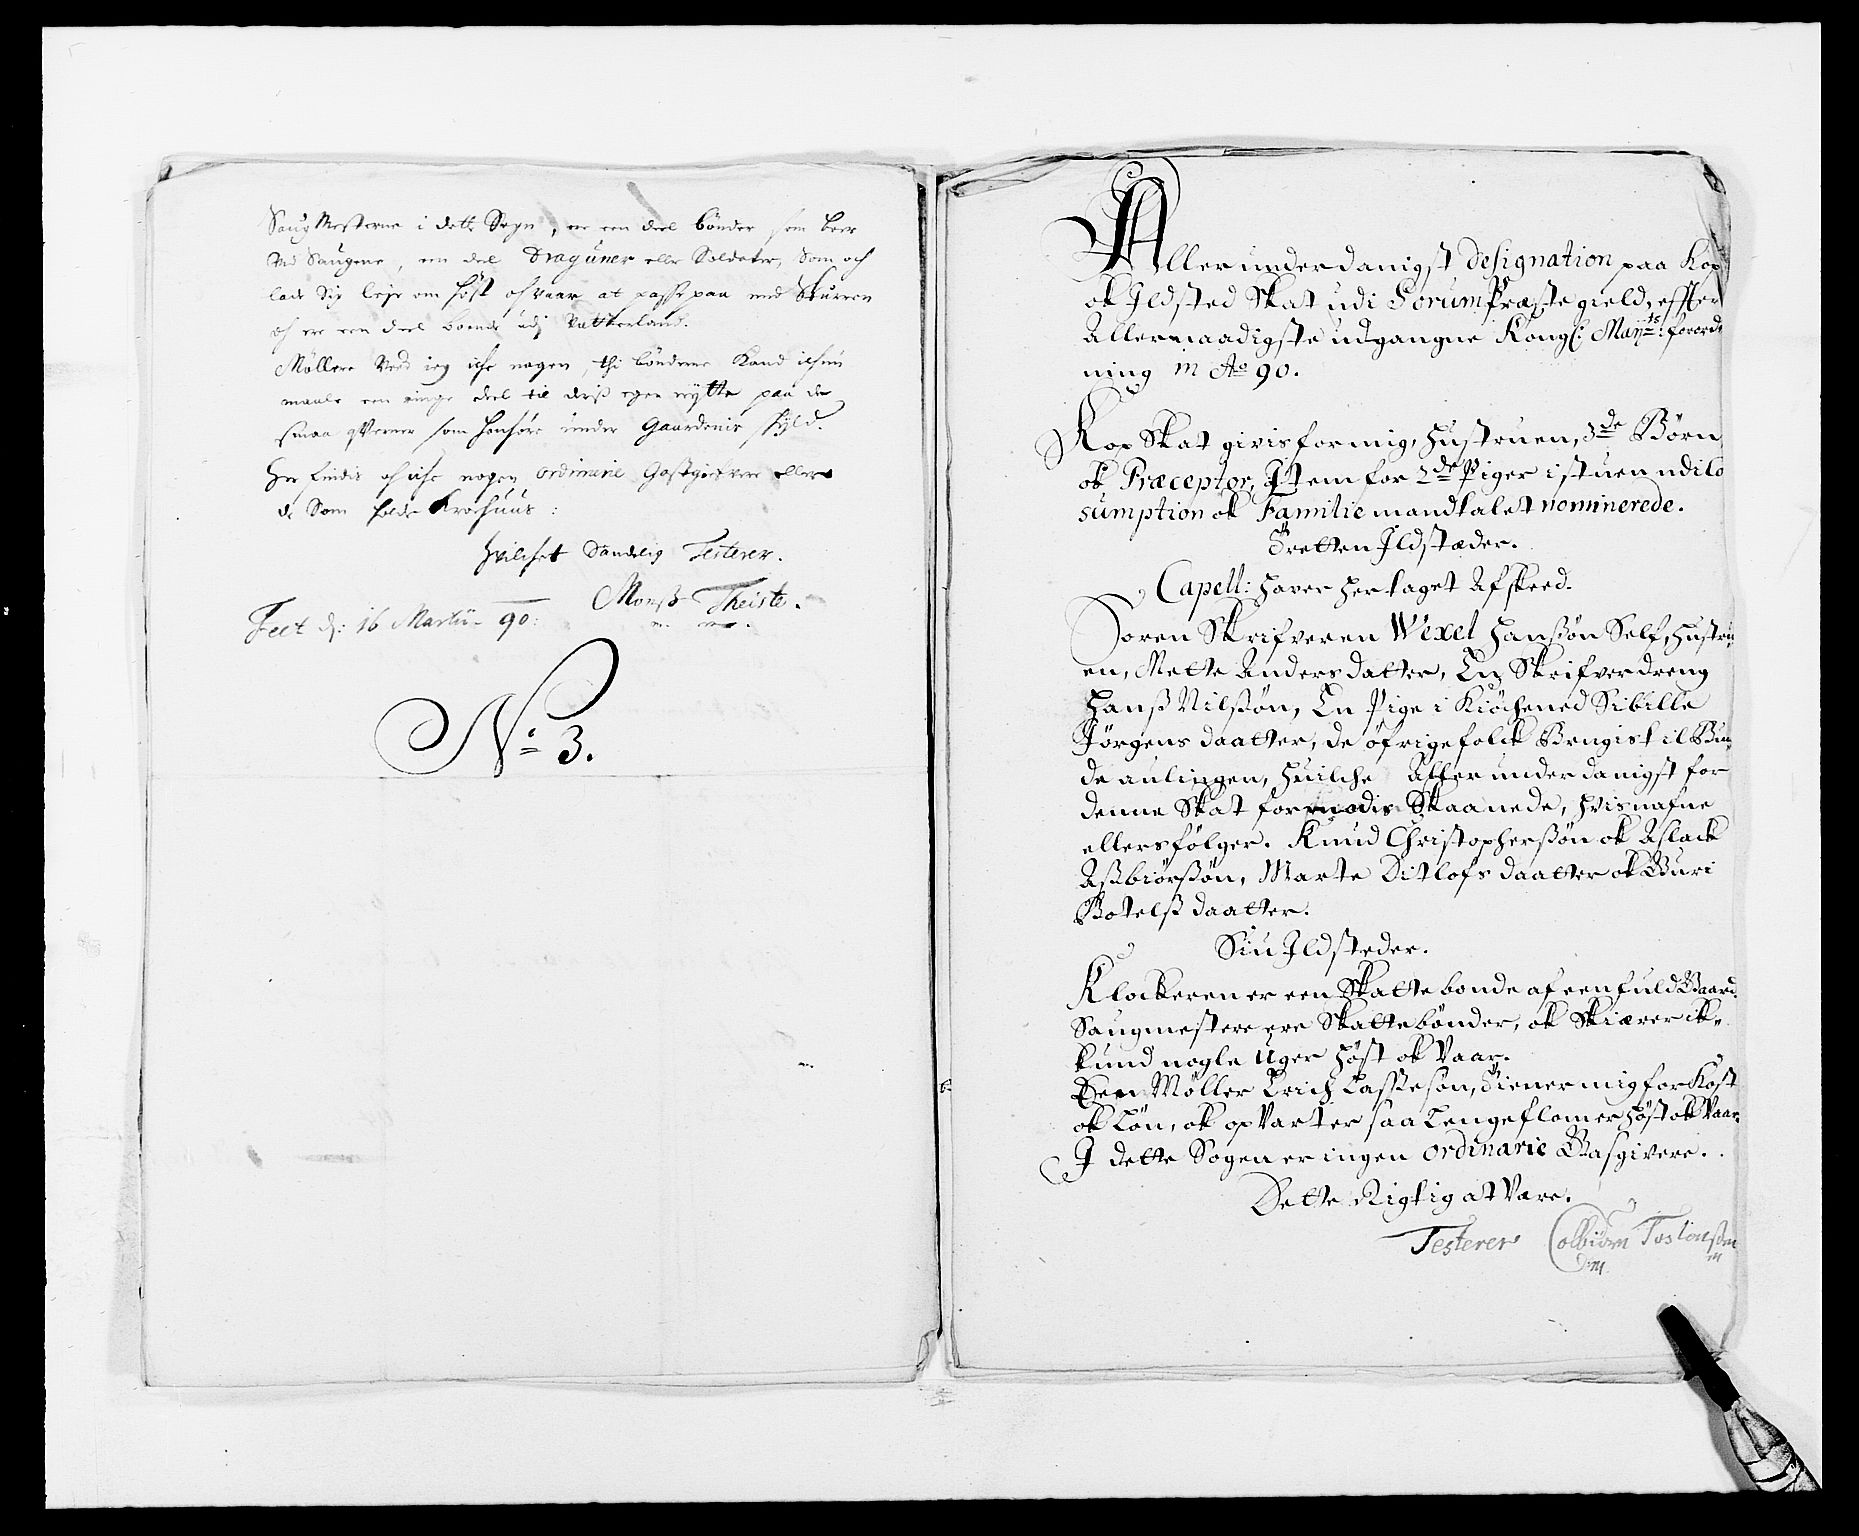 Saug Mesterne i dette Sogn, er een deel bönder som boer
ved Saugene, een deel Dragüner eller Soldater, som och
lade Sig leje om höst och vaar at passe paa med Skurren
och ere een deel boende udj Vatterland.
Möllere Veed ieg iche nogen, thi bönderne Kand ichun
maale een ringe deel til deris egen nÿtte paa de
smaa qverner som henhöre under Gaardenis skÿld.
Her findis och iche nogen ordinarie Gestgiefvere eller
de Som holde Krochuus:
Hvilchet Sandelig Testerer.
Monß Theiste.
Fect d: 16 Martii 90:
No 3.
Aller underdanigst Designation paa Kop
ok Ildsted Skat udi Sorum Præstegield, effter
Allernaadigste udgangne Kongl: Mayts: forord
ning in Ao 90.
Kop Skat givis for mig, Hustruen, 3de Börn
ok Præceptor, Item for 2de Piger i stuen udi Co
sumption ok Familie mandtalet nominerede.
Tretten Ildstæder.
Capell: hafver her taget Afskeed.
Soren Skrifveren Wexel Hanßön Self, Hustru
en, Mette Andersdatter, En Skrifverdreng
Hanß Nilßön, En Pige i Kiöchened Sibille
Jörgens daatter, de öfrige folck Brugis til Bun
de aulingen, huilche Aller underdanigst for
denne Skat formodis Skaanede, hvis nafne
ellers fölger. Knud Christopherßön ok Aslack
Aßbiörßön, Marte Ditlofs daatter ok Guri
Botelß daatter.
Siu Ildsteder.
Klockeren er een Skattebonde af een fuld Gaard.
Saugmestere ere Skattebönder, ok Skiærer ik-
kund nogle Uger Höst ok Vaar.
Den Möller Erich Lasseson, Tiener mig for Kost
ok Lön, ok opVarter saa Lenge flom er Höst ok Vaar.
I dette Sogen er ingen ordinarie Gasgivere.
Dette Rigtig at Være.
Testerer Colbiörn Tostonßen